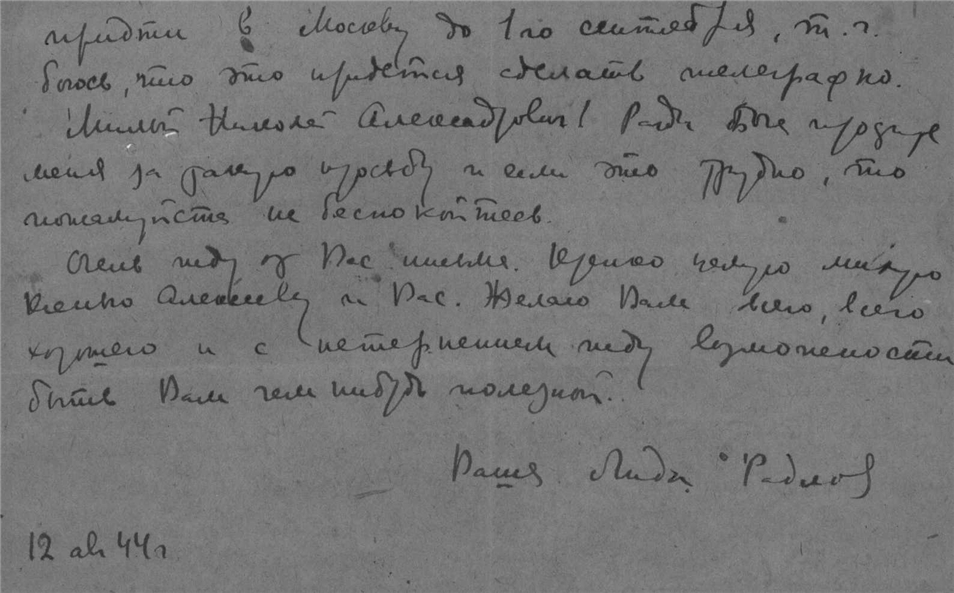 придти в Москву до 1го сентября, т.г.
боюсь, что это придется сделать телеграфно.
Милый Николай Александрович! Ради Бога простите
меня за такую просьбу и если это трудно, то
пожалуйста не беспокойтесь.
Очень жду от Вас письма. Крепко целую милую
Алексеевну и Вас. Желаю Вам всего, всего
хорошего и с нетерпением жду возможности
быть Вам чем нибудь полезной.
Ваша Лида Радлов
12 авг 44 г